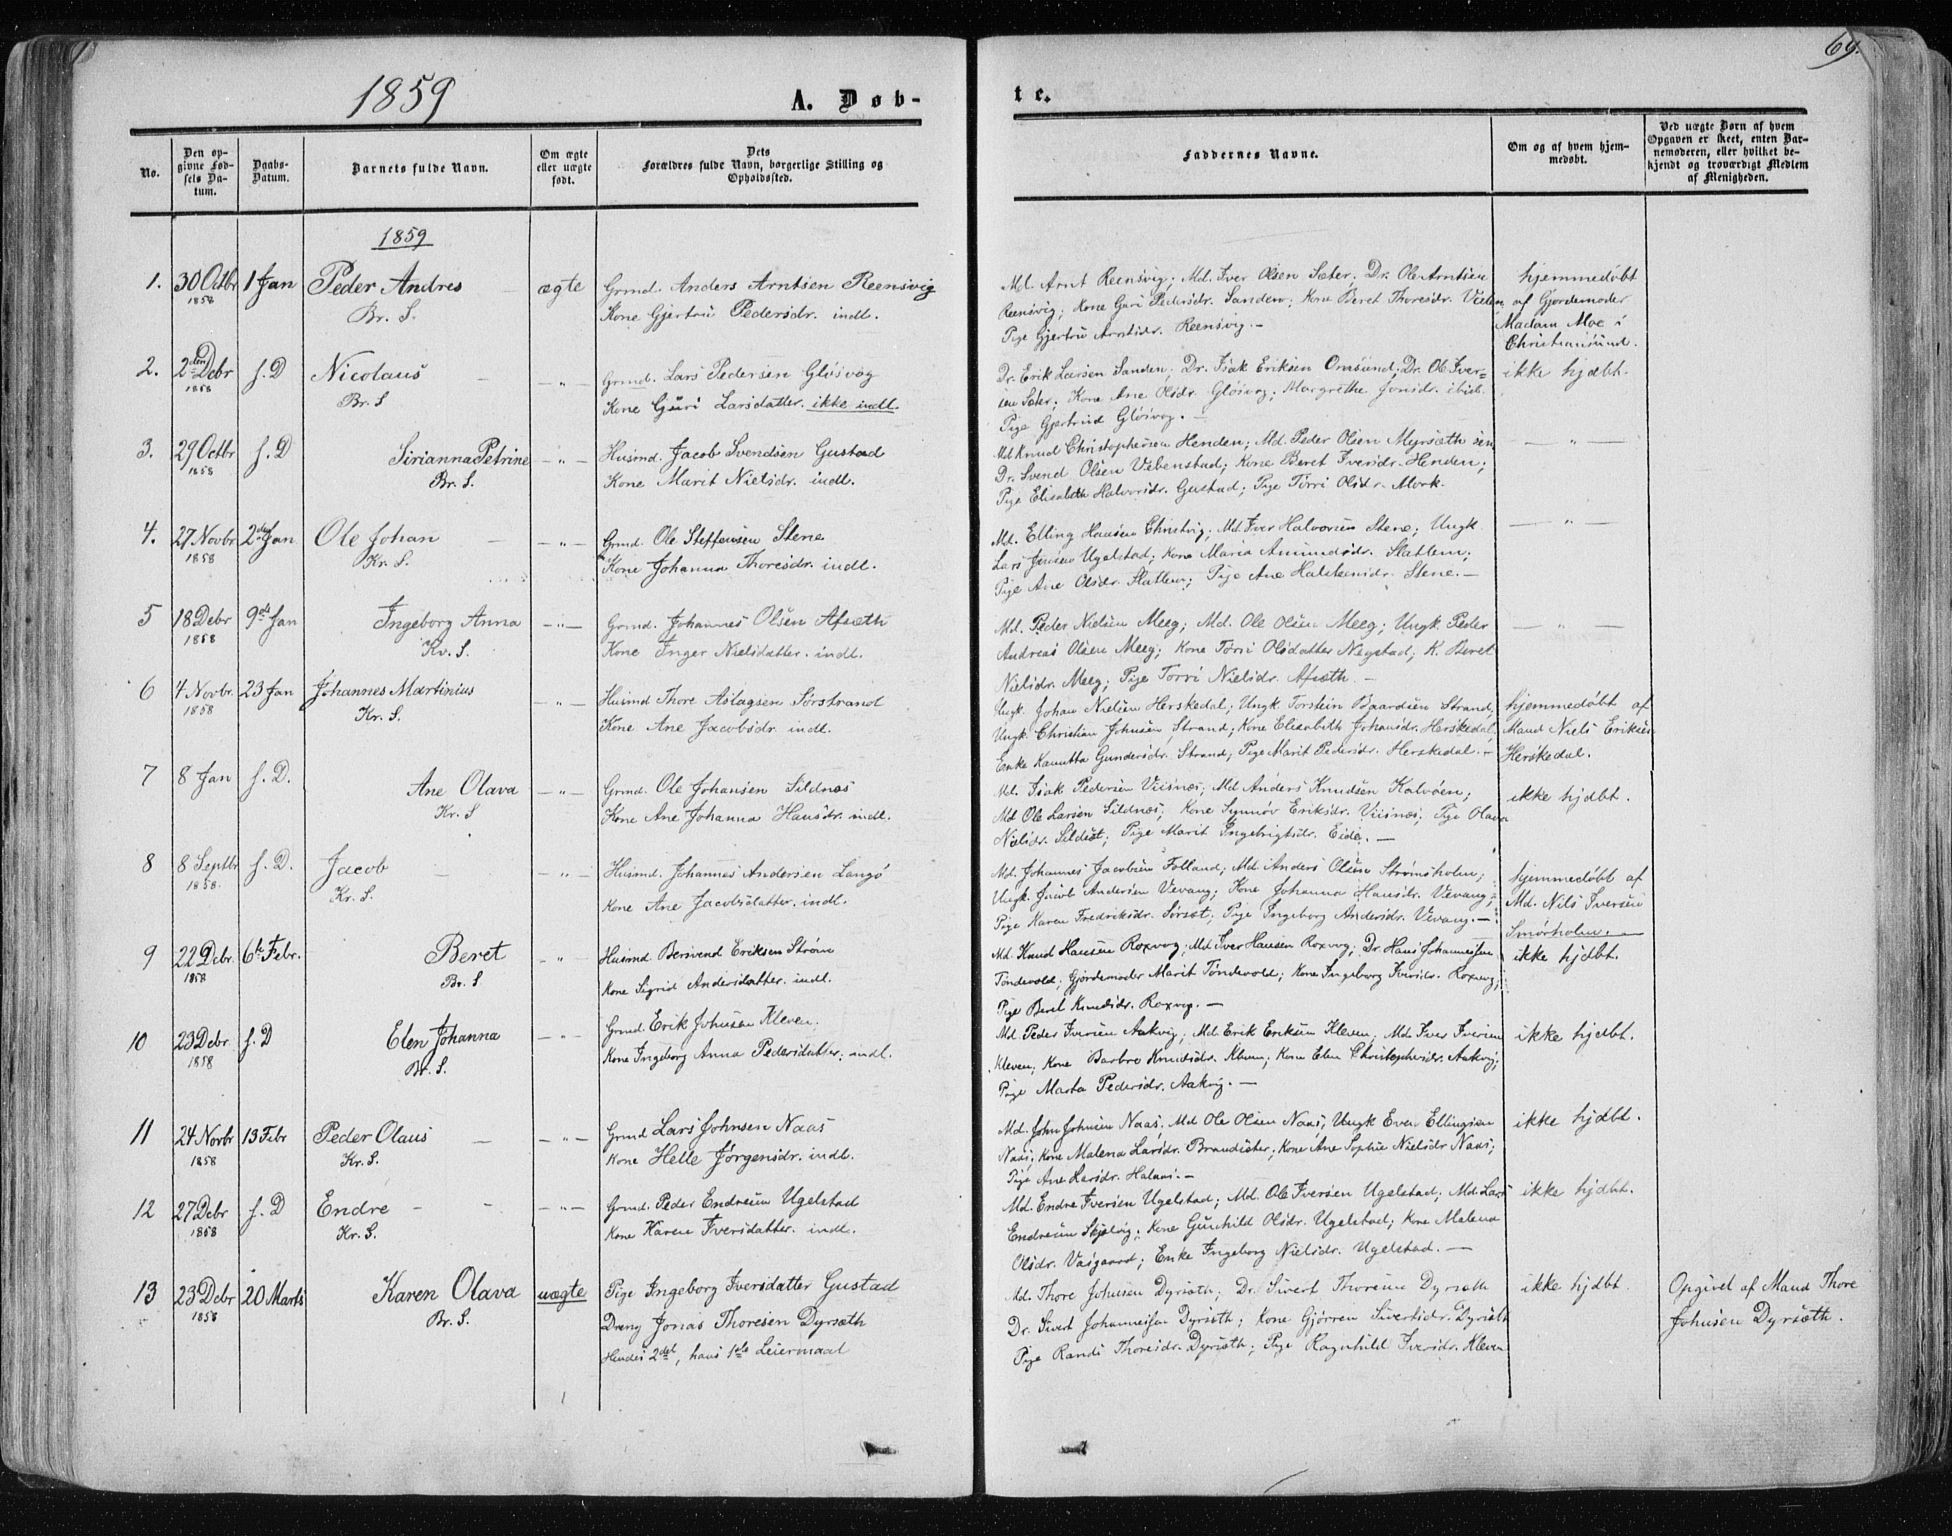 1859
A. Døb-
te.
69.
No.
Den op-
givne Fød-
sels Da-
tum.
Daabs-
Datum.
Barnets fulde Navn.
Om ægte
eller uægte
født.
Dets
Forældres fulde Navn, borgerlige Stilling og
Opholdssted.
Faddernes Navne.
Om og af hvem hjem-
medøbt.
Ved uægte Børn af hvem
Opgaven er skeet, enten Bar-
nemoderen, eller hvilket be-
kjendt og troværdigt Medlem
af Menigheden.
1859
1. 30 Octbr 1858 1 Jan Peder Andres Br. S. ægte
Grmd. Anders Arntsen Reensvig
Kone Gjertru Pedersdr. indl.
Md. Arnt Reensvig; Md. Iver Olsen Sæter; Dr. Ole Arntsen
Reensvig; Kone Guri Pedersdr. Sanden; Kone Beret Thoresdr.
Pige Gjertru Arntsdr. Reensvig. —
hjemmedøbt
af Gjordemoder
Madam Moe i
Christiansund.
2. 2den Debr 1858 s. D Nicolaus Br. S — „ —
Grmd. Lars Pedersen Gløsvog
Kone Guri Larsdatter. ikke indl.
Dr. Erik Larsen Sanden; Dr. Isak Eriksen Omsund; Dr. Ole Iver-
sen Sæter; Kone Ane Olsdr. Gløsvog; Margrethe Jonsdr. ibid.
Pige Gjertrud Gløsvog. —
ikke hjdbt.
3. 29 Octbr 1858 s. D Sirianna Petrine Br. S. — „ —
Husmd. Jacob Svendsen Gustad
Kone Marit Nielsdr. indl.
Md Knud Christophersen Henden; Md. Peder Olsen Myrsæth sen
Dr. Svend Olsen Vebenstad; Kone Beret Iversdr. Henden;
Pige Elisabeth Halvorsdr. Gustad; Pige Torri Olsdr. Mork.
— „ —
4. 27 Novbr 1858 2den Jan Ole Johan Kr. S. — „ —
Grmd. Ole Steffensen Stene
Kone Johanna Thoresdr. indl.
Md. Elling Hansen Christvig; Md. Iver Halvorsen Stene; Ungk.
Lars Jensen Ugelstad; Kone Maria Amundsdr. Slatlem;
Pige Ane Olsdr. Slatlem; Pige Ane Halstensdr. Stene. —
— „ —
5 18 Debr 1858 9de Jan Ingeborg Anna Kr. S. — „ —
Grmd. Johannes Olsen Afsæth
Kone Inger Nielsdatter. indl.
Md. Peder Nielsen Meeg; Md. Ole Olsen Meeg; Ungk. Peder
Andreas Olsen Meeg; Kone Torri Olsdatter Negstad; K. Beret
Nielsdr. Meeg; Pige Torri Nielsdr. Afsæth. —
— „ —
6 4 Novbr. 1858 23 Jan Johannes Martinius Kr. S. — „ —
Husmd Thore Aslagsen Sørstrand
Kone Ane Jacobsdr. indl.
Ungk. Johan Nielsen Herskedal; Ungk Torstein Baardsen Strand;
Ungk. Christian Johnsen Strand; Kone Elisabeth Johansdr. Herskedal;
Enke Kanutta Gundersdr. Strand; Pige Marit Pedersdr. Herskedal. —
hjemmedøbt af
Mand Niels Eriksen
Herskedal.
7 8 Jan s. D. Ane Olava Kr. S — „ —
Grmd. Ole Johansen Sildnæs
Kone Ane Johanna Hansdr. indl.
Md. Isak Pedersen Viisnæs; Md Anders Knudsen Kalvøen;
Md Ole Larsen Sildnæs; Kone Synnøv Eriksdr. Viisnæs; Pige Olava
Nielsdr. Sildset; Pige Marit Ingebrigtsdr. Eide. —
ikke hjdbt.
8 8 Septbr 1858. s. D. Jacob Kr. S. — „ —
Husmd. Johannes Andersen Langø
Kone Ane Jacobsdatter. indl.
Md. Johannes Jacobsen Folland; Md Anders Olsen Strømsholm;
Ungk. Jacob Andersen Vevang; Kone Johanna Hansdr. Vevang;
Pige Karen Fredriksdr. Sørset; Pige Ingeborg Andersdr. Vevang. —
hjemmedøbt af
Md. Nils Iversen
Smørholm. —
9 22 Debr. 1858 6te Febr. Beret Br. S — „ —
Husmd Bersvend Eriksen Strøm
Kone Sigrid Andersdatter. indl.
Md. Knud Hansen Roxvog; Md Iver Hansen Roxvog; Dr. Hans Johannessen
Tøndevold; Gjordemoder Marit Tøndevold; Kone Ingeborg Iversdr. Roxvog;
Pige Beret Knudsdr. Roxvog. —
ikke hjdbt.
10 23 Debr 1858 s. D Elen Johanna Br. S. — „ —
Grmd. Erik Johnsen Kleven.
Kone Ingeborg Anna Pedersdatter. indl.
Md. Peder Iversen Aakvig; Md. Erik Eriksen Kleven; Md. Iver Iversen
Kleven; Kone Barbro Knudsdr. Kleven; Kone Elen Christophersdr. Aakvig;
Pige Marta Pedersdr. Aakvig. —
ikke hjdbt.
11 24 Novbr 1858 13 Febr Peder Olaus Kr. S. — „ —
Grmd Lars Johnsen Naas
Kone Helle Jørgensdr. indl.
Md. John Johnsen Naas; Md Ole Olsen Naas; Ungk Even Ellingsen
Naas; Kone Malena Larsdr. Brandsæter; Kone Ane Sophie Nielsdr Naas;
Pige Ane Larsdr. Halaas. —
ikke hjdbt.
12 27 Debr 1858 s. D Endre Kr. S. — „ —
Grmd. Peder Endresen Ugelstad
Kone Karen Iversdatter. indl.
Md. Endre Iversen Ugelstad; Md. Ole Iversen Ugelstad; Md. Lars
Endresen Skjelvig; Kone Gunhild Olsdr. Ugelstad; Kone Malena
Olsdr. Vaagaard; Enke Ingeborg Nielsdr. Ugelstad. —
ikke hjdbt.
13 23 Debr 1858 20 Marts Karen Olava Br. S. uægte
Pige Ingeborg Iversdatter Gustad
Dreng Jonas Thoresen Dyrsæth
Hendes 2det, hans 1ste Leiermaal
Md. Thore Johnsen Dyrsæth; Dr. Sivert Thoresen Dyrsæth
Dr. Sivert Johannessen Dyrsæth; Kone Gjørren Sivertsdr. Dyrsæth
Pige Randi Thoresdr. Dyrsæth; Pige Ragnhild Iversdr. Kleven
ikke hjdbt.
Opgivet af Mand Thore
Johnsen Dyrsæth.